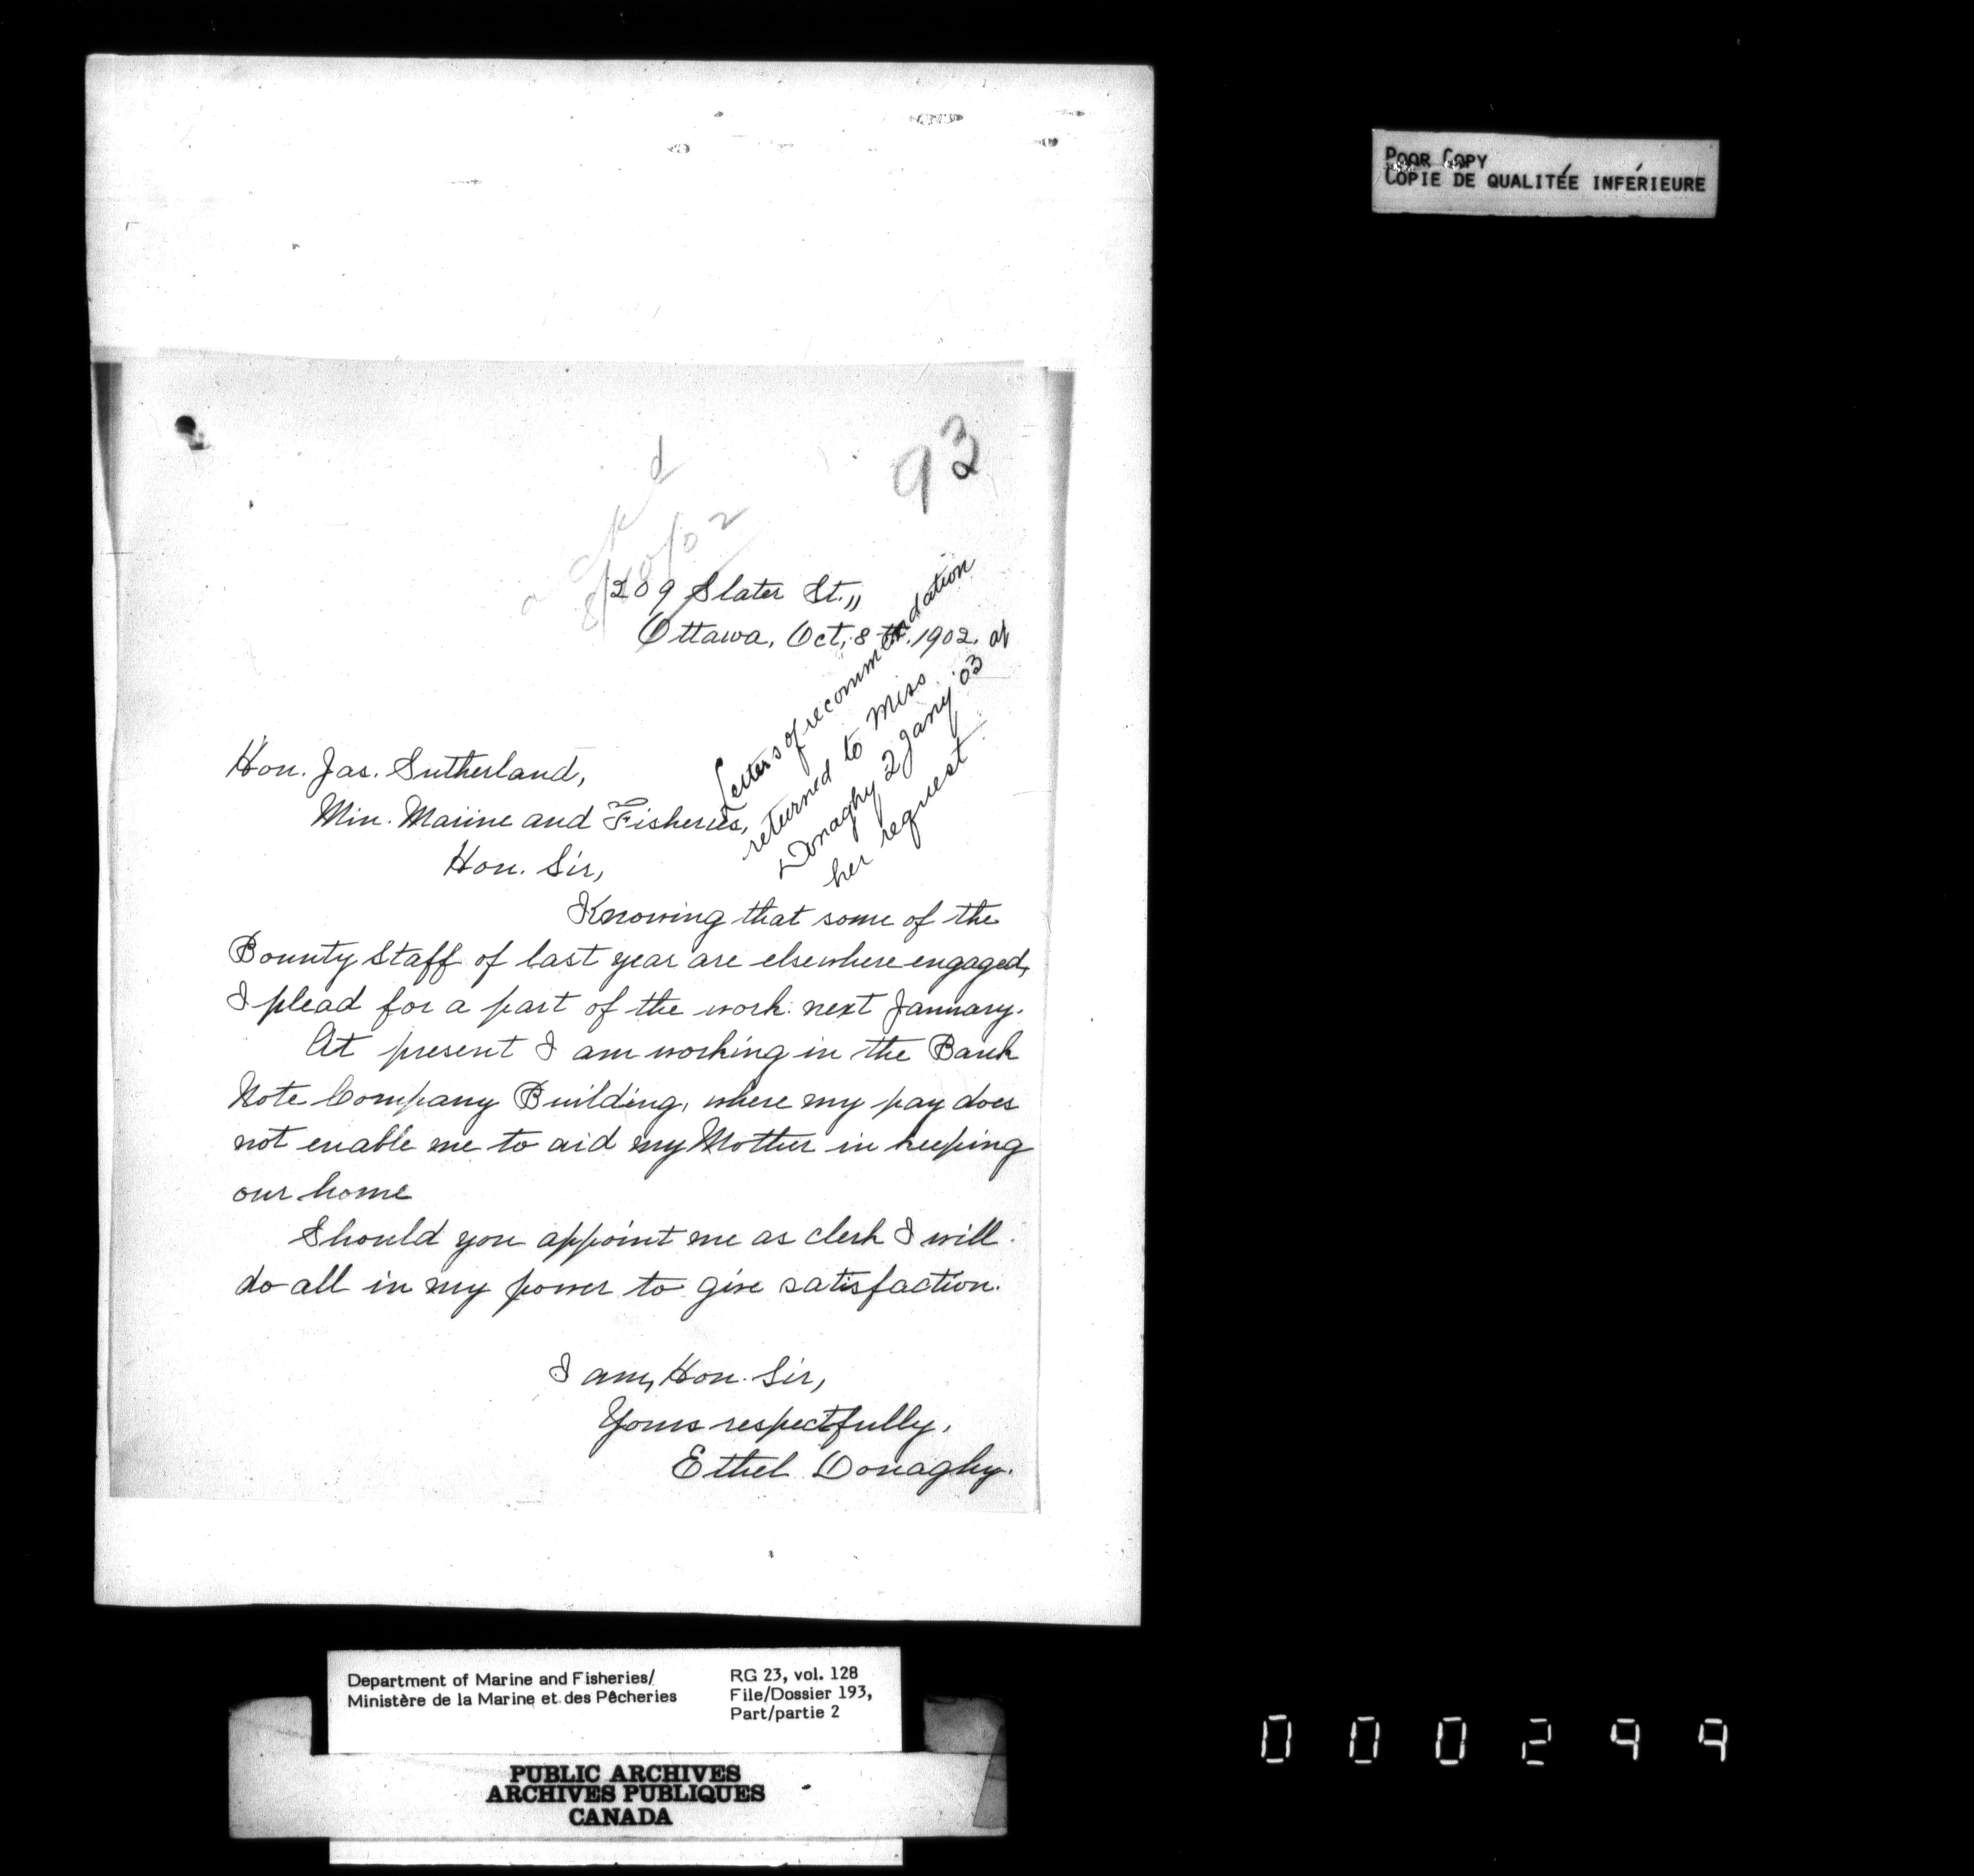 POOR COPY
COPIE DE QUALITÉE INFÉRIEURE
93
ackd
8/10/02
209 Slater St.,,
Ottawa, Oct, 8th. 1902.
Letters of recommendation
returned to Miss
Donaghy 2 Jany '03 at
her request
Hon. Jas. Sutherland,
Min. Marine and Fisheries,
Hon. Sir,
Knowing that some of the
Bounty Staff of last year are elsewhere engaged,
I plead for a part of the work next January.
At present I am working in the Bank
Note Company Building, where my pay does
not enable me to aid my Mother in keeping
our home
Should you appoint me as clerk I will
do all in my power to give satisfaction.
I am, Hon. Sir,
Yours respectfully,
Ethel Donaghy.
Department of Marine and Fisheries/
Ministère de la Marine et des Pêcheries
RG 23, vol. 128
File/Dossier 193,
Part/partie 2
PUBLIC ARCHIVES
ARCHIVES PUBLIQUES
CANADA
000299